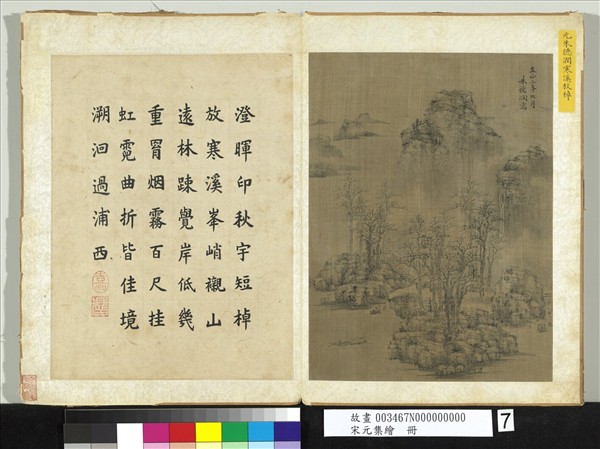 元朱德潤寒溪放棹
朱德潤寫
澄暉印秋宇短棹
放寒溪峯峭襯山
遠林踈覺岸低幾
重罥烟霧百尺挂
虹霓曲折皆佳境
溯洄過浦西
故畫 003467N000000000
宋元集繪 冊
7